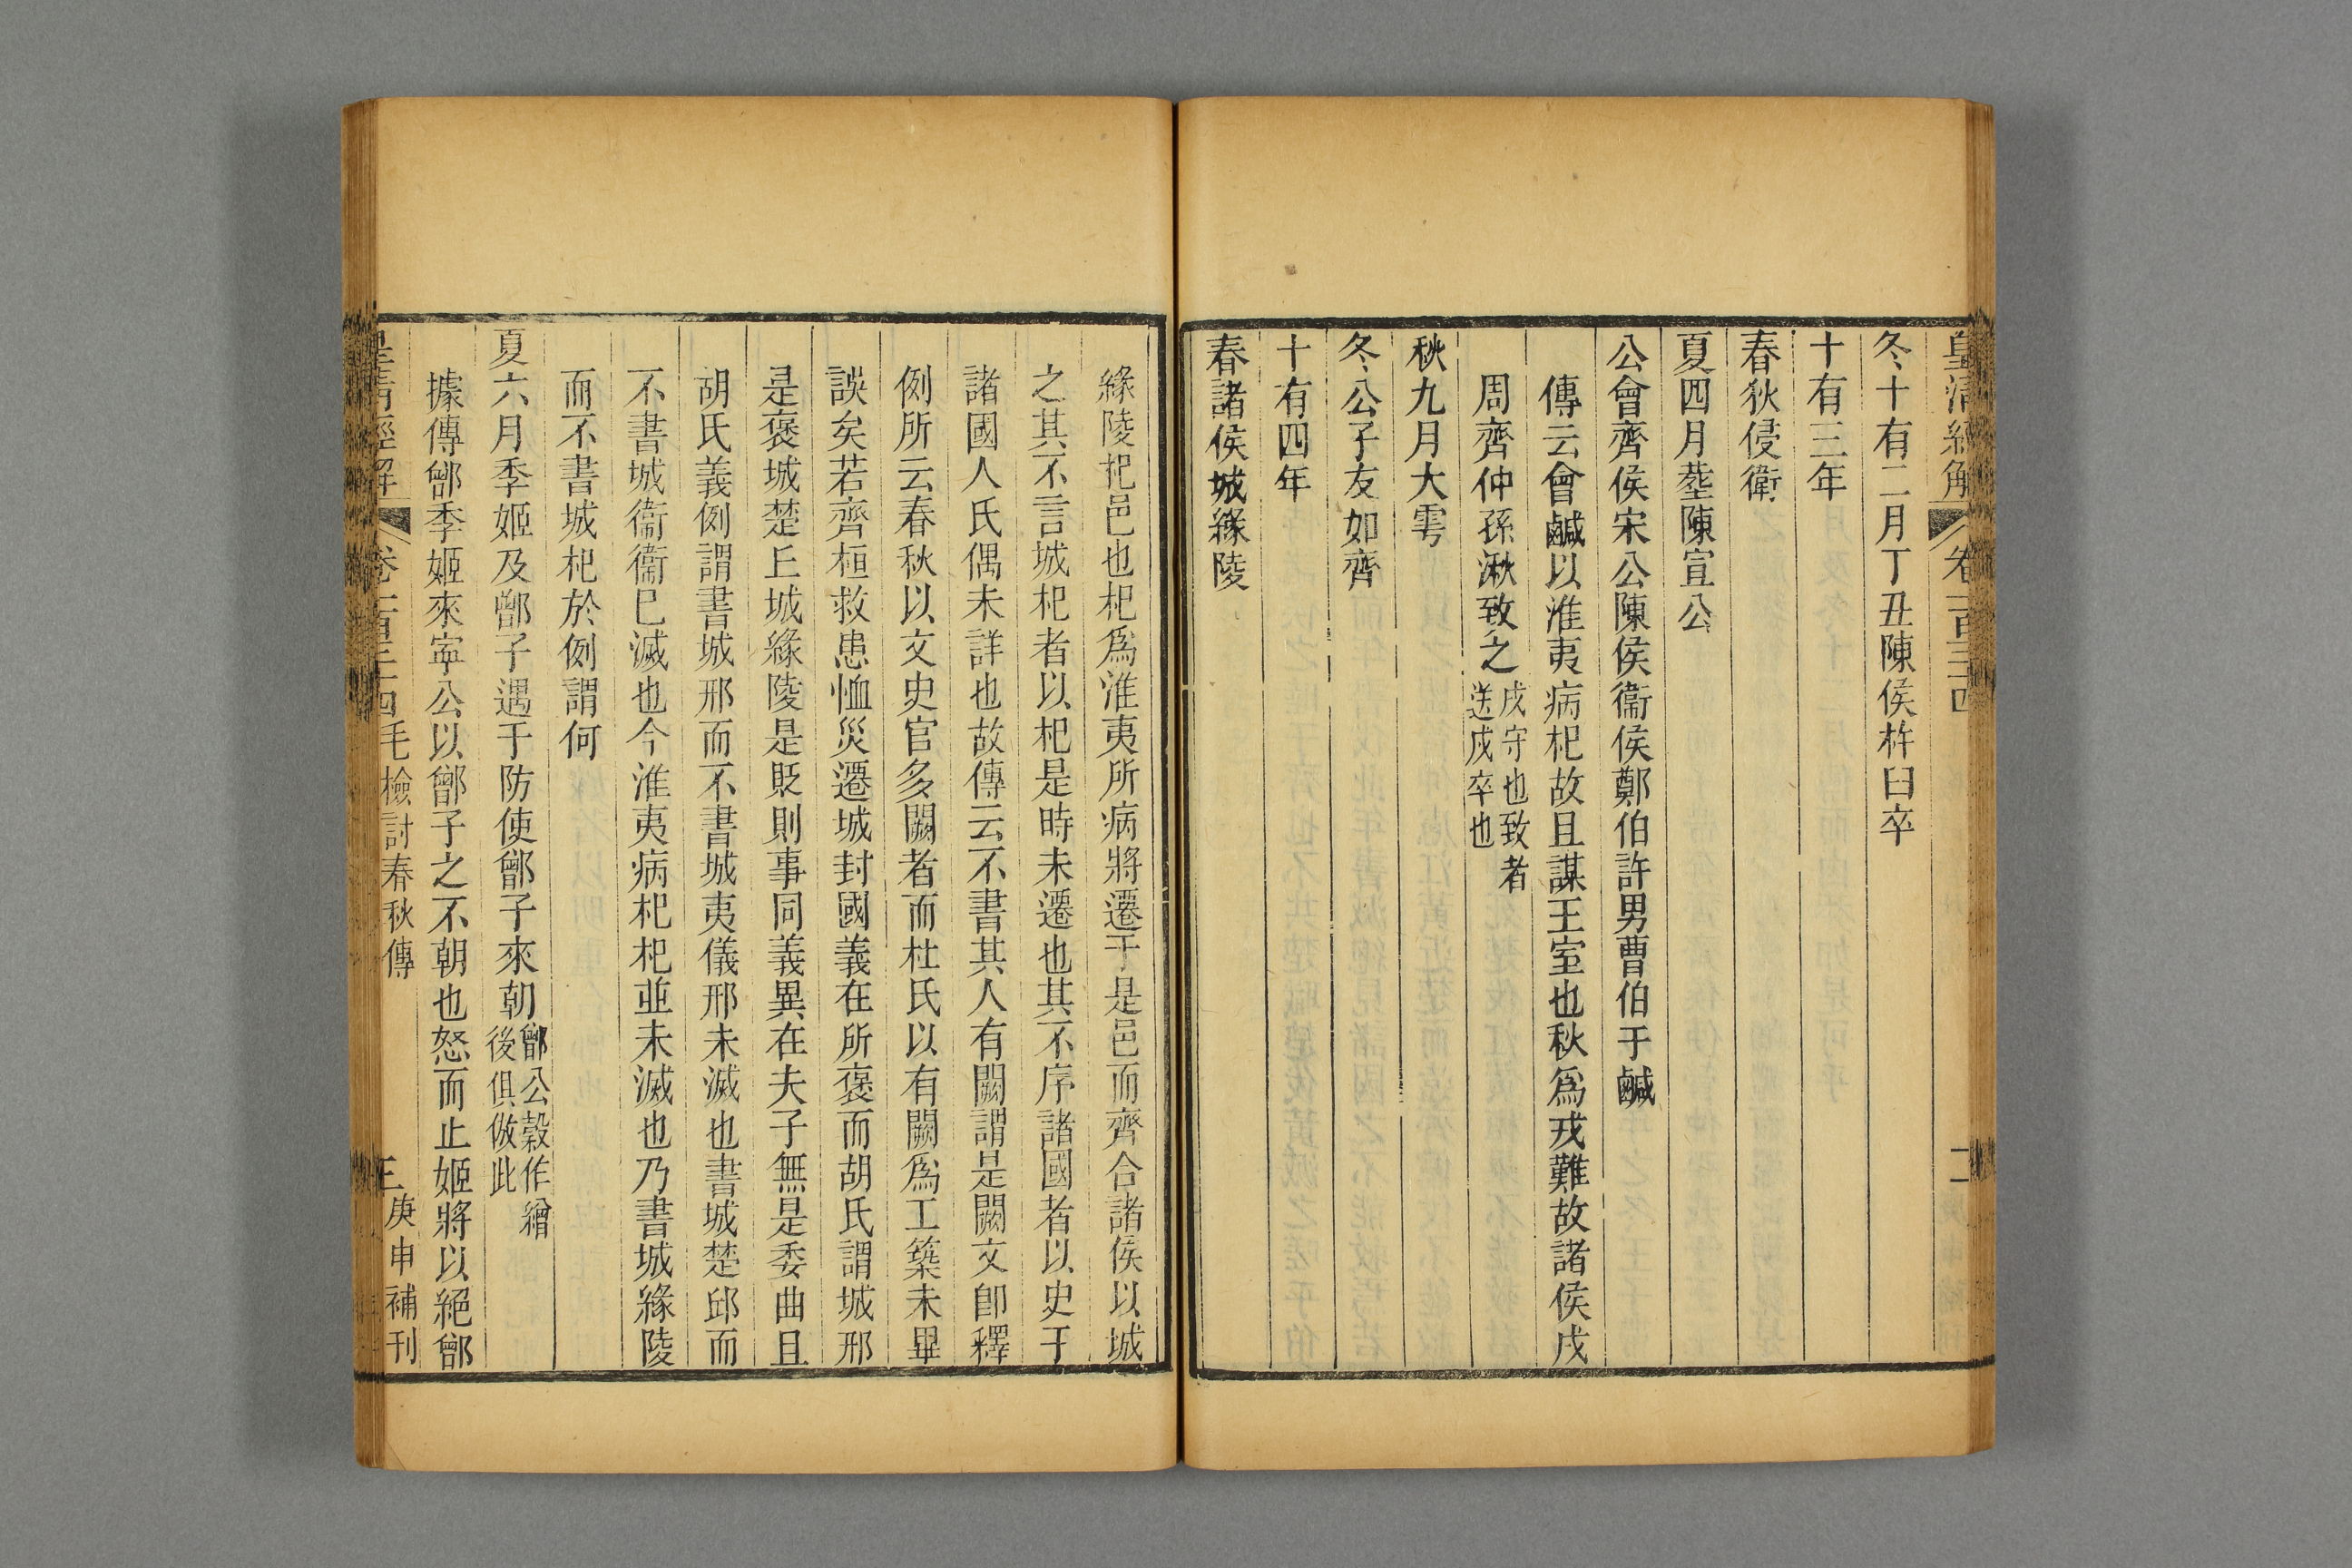 皇清經解 卷一百三十四 二
冬十有二月丁丑陳侯杵臼卒
十有三年
春狄侵衛
夏四月葬陳宣公
公會齊侯宋公陳侯衞侯鄭伯許男曹伯于鹹
傳云會鹹以淮夷病杞故且謀王室也秋爲戎難故諸侯戍
周齊仲孫湫致之戍守也致者送戍卒也
秋九月大雩
冬公子友如齊
十有四年
春諸侯城緣陵
緣陵杞邑也杞爲淮夷所病將遷于是邑而齊合諸侯以城
之其不言城杞者以杞是時未遷也其不序諸國者以史于
諸國人氏偶未詳也故傳云不書其人有闕謂是闕文卽釋
例所云春秋以文史官多闕者而杜氏以有闕爲工築未畢
誤矣若齊桓救患恤災遷城封國義在所褒而胡氏謂城邢
是褒城楚丘城緣陵是貶則事同義異在夫子無是委曲且
胡氏義例謂書城邢而不書城夷儀邢未滅也書城楚邱而
不書城衞衞巳滅也今淮夷病杞杞並未滅也乃書城緣陵
而不書城杞於例謂何
夏六月季姬及鄫子遇于防使鄫子來朝鄫公穀作繒後俱倣此
據傳鄫季姬來寧公以鄫子之不朝也怒而止姬將以絕鄫
皇清經解 卷一百三十四 毛檢討春秋傳 三 庚申補刊